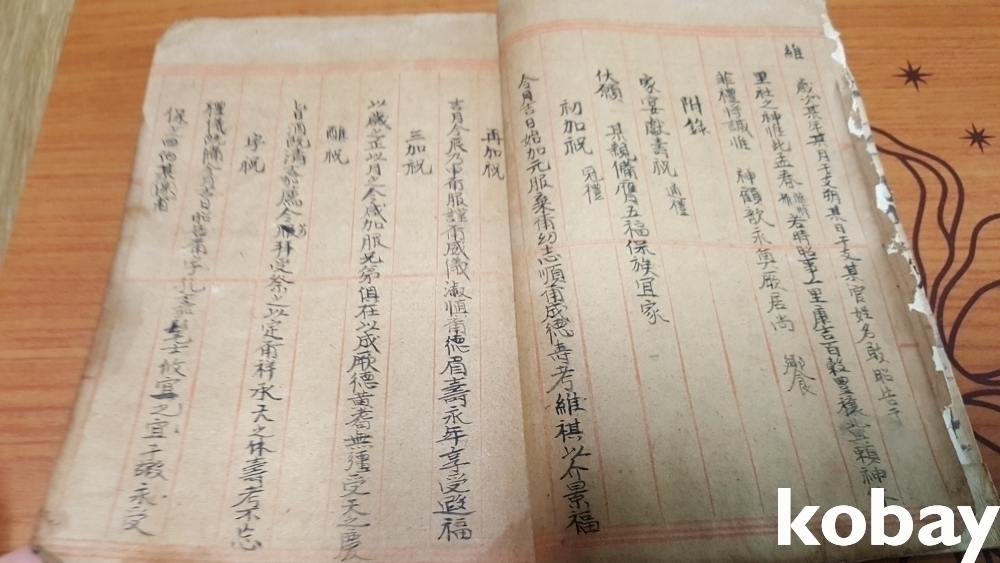 維
歲次某年某月干支朔某日干支某官姓名敢昭告于
里社之神惟此孟春 若時昭事 里康吉百穀豊穰 賴神
菲禮將誠惟 神顧歆永奠厥居尚 饗
附錄
家宴獻壽祝
伏願 某親備膺五福保族宜家
初加祝 冠禮
今月吉日始加元服棄甭幼志順甭成德壽考維祺以介景福
再加祝
吉月令辰乃申甭服謹甭威儀淑愼甭德眉壽永年享受遐福
三加祝
以歲之正以月之令咸加服兄弟俱在以成厥德黃耇無疆受天之慶
醮祝
旨酒旣淸嘉薦令芳拜受祭之以定甭祥承天之休壽考不忘
字祝
禮儀旣備令月吉日昭告甭字孔嘉髦士攸宜宜之于嘏永受
保之
kobay